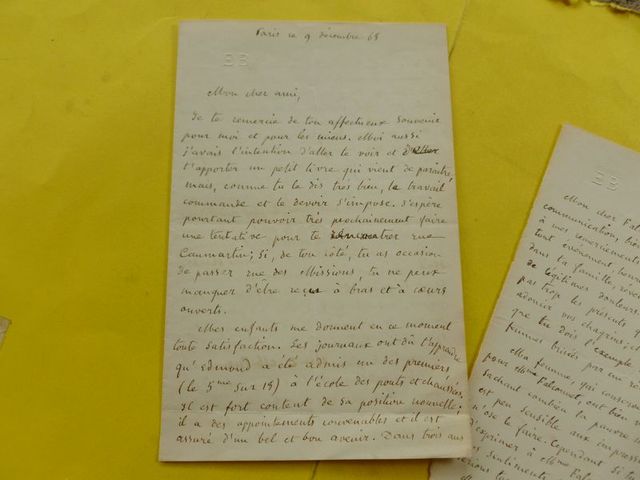 Paris ce 9 décembre 65
BB
Mon cher ami,
Je te remercie de ton affectueux souvenir
pour moi et pour les miens. Moi aussi
j'avais l'intention d'aller te voir et d'
t'apporter un petit livre qui vient de paraître,
mais, comme tu le dis très bien, le travail
commande et le devoir s'impose. J'espère
pourtant pouvoir très prochainement faire
une tentative pour te rencontrer rue
Caumartin; si, de ton côté, tu as occasion
de passer rue des Missions, tu ne peux
manquer d'être reçu à bras et à cœurs
ouverts.
Mes enfants me donnent en ce moment
toute satisfaction. Les journaux ont dû t'apprendre
qu'Edmond a été admis un des premiers
(le 5me sur 15) à l'école des ponts et chaussées
Il est fort content de sa position nouvelle;
il a des appointements convenables et il est
assuré d'un bel et bon avenir. Dans trois ans
BB
Mon cher
communication
à nos remerciements
tout événement
dans la famille,
de légitimes douleurs
pas trop les présents
adoucir vos chagrins, et
que tu dois l'exemple
femmes brisées par un
Ma femme, qui
pour Mme
sachant combien la pauvre
est peu sensible aux
n'ose le faire. Cependant si
d'exprimer à Mme
sentiments